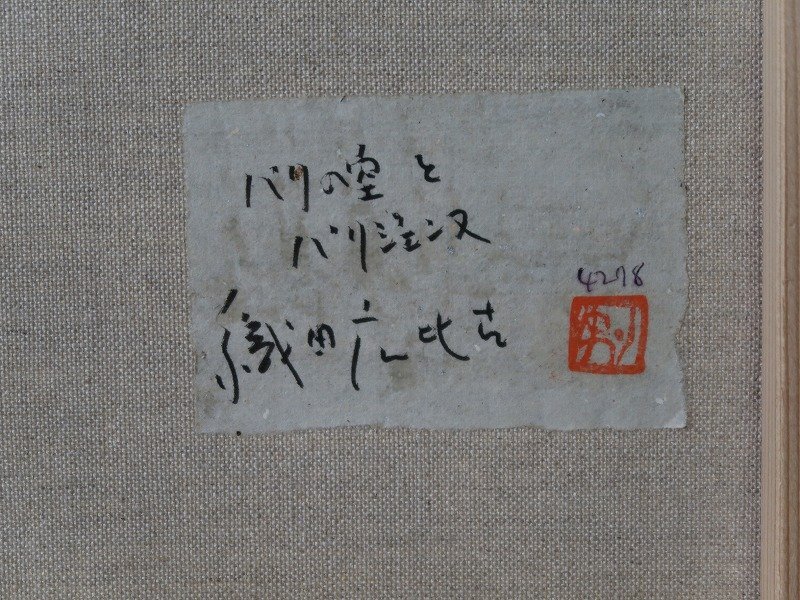 パリの空と
パリジェンヌ
4278
織田広比古